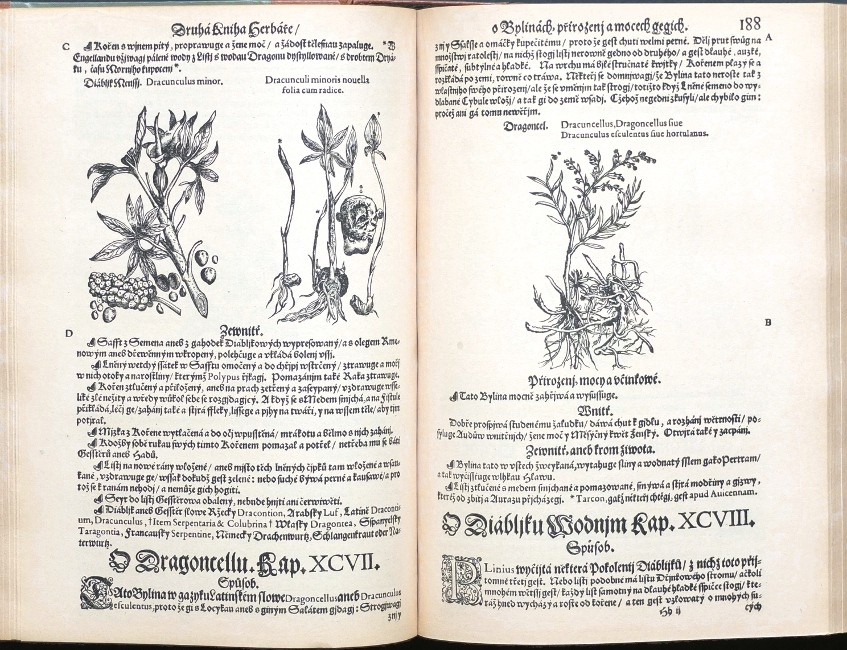 Druhá Kniha Herbáře/
C
Kořen s wjnem pitý, proprawuge a žene moč / a žádost tělesnau zapaluge. * W
Engellandu vžjwagj pálené wody z Listj s wodau Dragonu dystyllowané/ s drobtem Dryá-
ku, času Morního kupocenj *.
Diáblik Menssj. Dracunculus minor.
Dracunculi minoris nouella
folia cum radice.
D
Zewnitř.
Safft z Semena aneb z gahodek Diáblikových wypresowaný/ a s olegem Rů-
nowým aneb dřewěnným wkropený, polehčuge a vkládá bolenj vssj.
Lněný wetchý ssátek w Safftu omočený a do chřjpj wstrčený/ ztrawuge a mořj
w nich otoky a narostliny/ kterýmž Polypus řjkagj. Pomazánjm také Raka ztrawuge.
Kořen ztlučený a přiložený, aneb na prach zetřený a zasypaný/ vzdrawuge wsse-
liké zlé nežity a wředy
Mjzka z Kořene wytlačená a do očj wpusstěná/ mrákotu a bělmo s nich zahánj.
Kdožby sobě rukau swých tjmto Kořenem pomazal a potřel/ netřeba mu se báti
Gesstěrů aneb Hadů.
Listj na nowé rány wložené / aneb mjsto těch lněných čjpků tam wložené a wsau-
kané, vzdrawuge ge/ wssak dokudž gest zelené: nebo suché býwá perné a kausawé/ a pro
tož se k ranám nehodj/ a nemůže gich hogiti.
Seyr do listj Gesstěrowa obalený, nebude hnjti ani četrwiwěti.
Diáblik aneb Gesstěr slowe Ržecky Dracontion, Arabsky Luf, Latině Draconti-
um, Dracunculus, † Item Serpentaria & Colubrina † Wlasky Dragontea, Sspanyelsky
Taragontia, Francausky Serpentine, Německy Drachenwurtz, Schlangenkraut oder Na-
terwurtz.
O Dragoncellu. Kap. XCVII.
Spůsob.
TAto Bylina w gazyku Latinském slowe Dragoncellus aneb Dracunculus
esculentus, proto že gi s Locykau aneb s giným Salátem gjdagj: Strogjwagj
znj y
o Bylinách, přirozenj a mocech gegich.
188
A
znj y Ssalsse a omáčky kupečitému / proto že gest chuti welmi perné. Dělj prut swůg na
množstwj ratolestj/ na nichž stogj listj nerowně gedno od druhého/ a gest dlauhé, auzké,
sspičaté, subtylné a hladké. Na wrchu má
rozkládá po zemi, rowně co tráwa. Někteřj se domnjwagj/ že Bylina tato neroste tak z
wlastnjho swého přirozenj/ ale že se vměnjm tak strogj/ totižto když Lněné semeno do wy-
dlabané Cybule wložj/ a tak gi do země wsadj. Čehož
pročež anj gá tomu newěřjm.
Dragoncel. Dracuncellus, Dragoncellus siue
Dracunculus esculentus siue hortulanus.
B
Přirozenj, moc y a včinkowé.
Tato Bylina mocně zahřjwá a wysussuge.
Wnitř.
Dobře prospjwá studenému žaludku/ dáwá chut k gjdlu, a rozhánj wětrnosti/ po-
syluge Audůw wnitřnjch/ žene moč y Měsyčný kwět ženský. Otwjrá také y zacpánj.
Zewnitř, aneb krom žiwota.
Bylina tato w vstech žwykaná, wytahuge sliny a wodnatý sslem gako Pertram/
a tak wyčisstuge wlhkau Hlawu.
Listj ztlučené s medem smjchané a pomazowané, snjmá a stjrá modřiny a gizwy,
které od zbitj a Aurazu přicházegj. * Tarcon, gakž někteřj chtěgj, gest apud Auicennam.
O Diábljku Wodnjm Kap. XCVIII.
Spůsob.
PLinius wyčjtá některá Pokolenj Diábljků/ z nichž toto přj-
tomné třetj gest. Nebo listj podobné má listu Dýnkowého stromu/ ačkoli
mnohém wětssj gest/ každý list samotný na dlauhé hladké sspičce stogj/ kte-
ráž hned wycházý a roste od kořene/ a ten gest vzlowatý o mnohých su-
Hh ij
cých